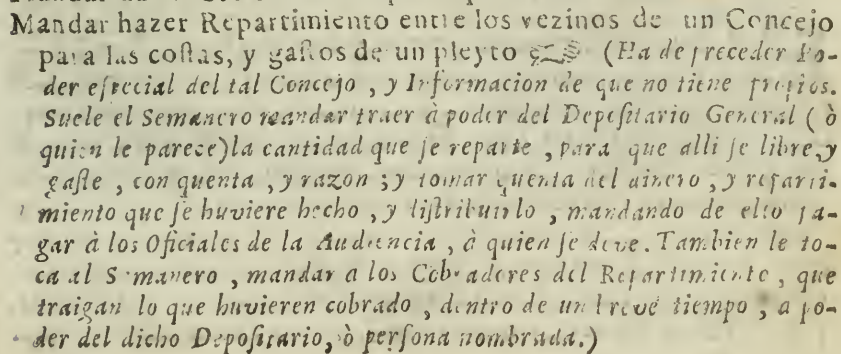 Mandar hazer Repartimiento entre los vezinos de un Concejo
para las costas, y gastos de un pleyto (Ha de preceder Po-
der especial del tal Concejo, y Informacion de que no tiene propios.
Suele el Semanero mandar traer à poder del Depositario General (ò
quien le parece) la cantidad que se reparte, para que alli se libre, y
gaste, con quenta, y razon; y tomar quenta del dinero, y reparti-
miento que se huviere hecho, y distribuirlo, mandando de ello pa-
gar à los Oficiales de la Audencia, à quien se deve. Tambien le to-
ca al Semanero, mandar a los Cobradores del Repartimiento, que
traigan lo que huvieren cobrado, dentro de un breve tiempo, a po-
der del dicho Depositario, ò persona nombrada.)